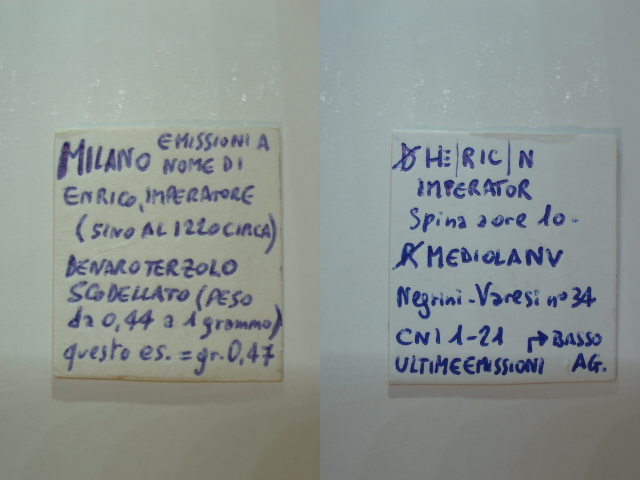 MILANO EMISSIONI A
NOME DI
ENRICO, IMPERATORE
(SINO AL 1220 CIRCA)
DENARO TERZOLO
SCODELLATO (PESO
da 0,44 a 1 grammo)
questo es. = gr. 0,47
D HE|RIC|N
IMPERATOR
Spina a ore 10.
R MEDIOLANV
Negrini-Varesi n° 34
CNI 1-21 → BASSO
ULTIME EMISSIONI AG.